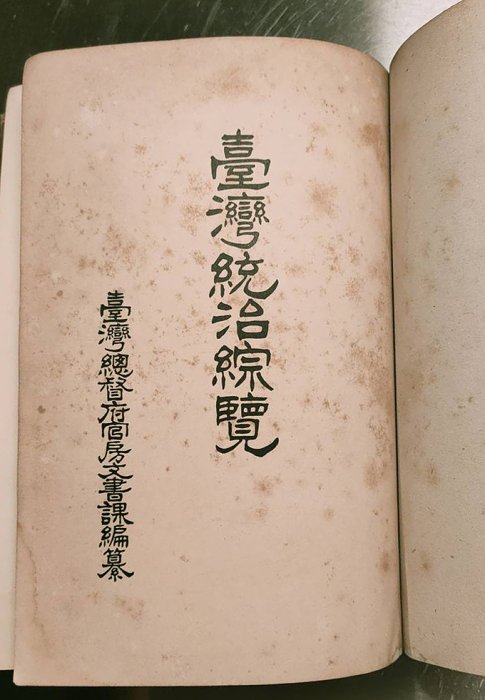 臺灣統治綜覽
臺灣總督府官房文書課編纂